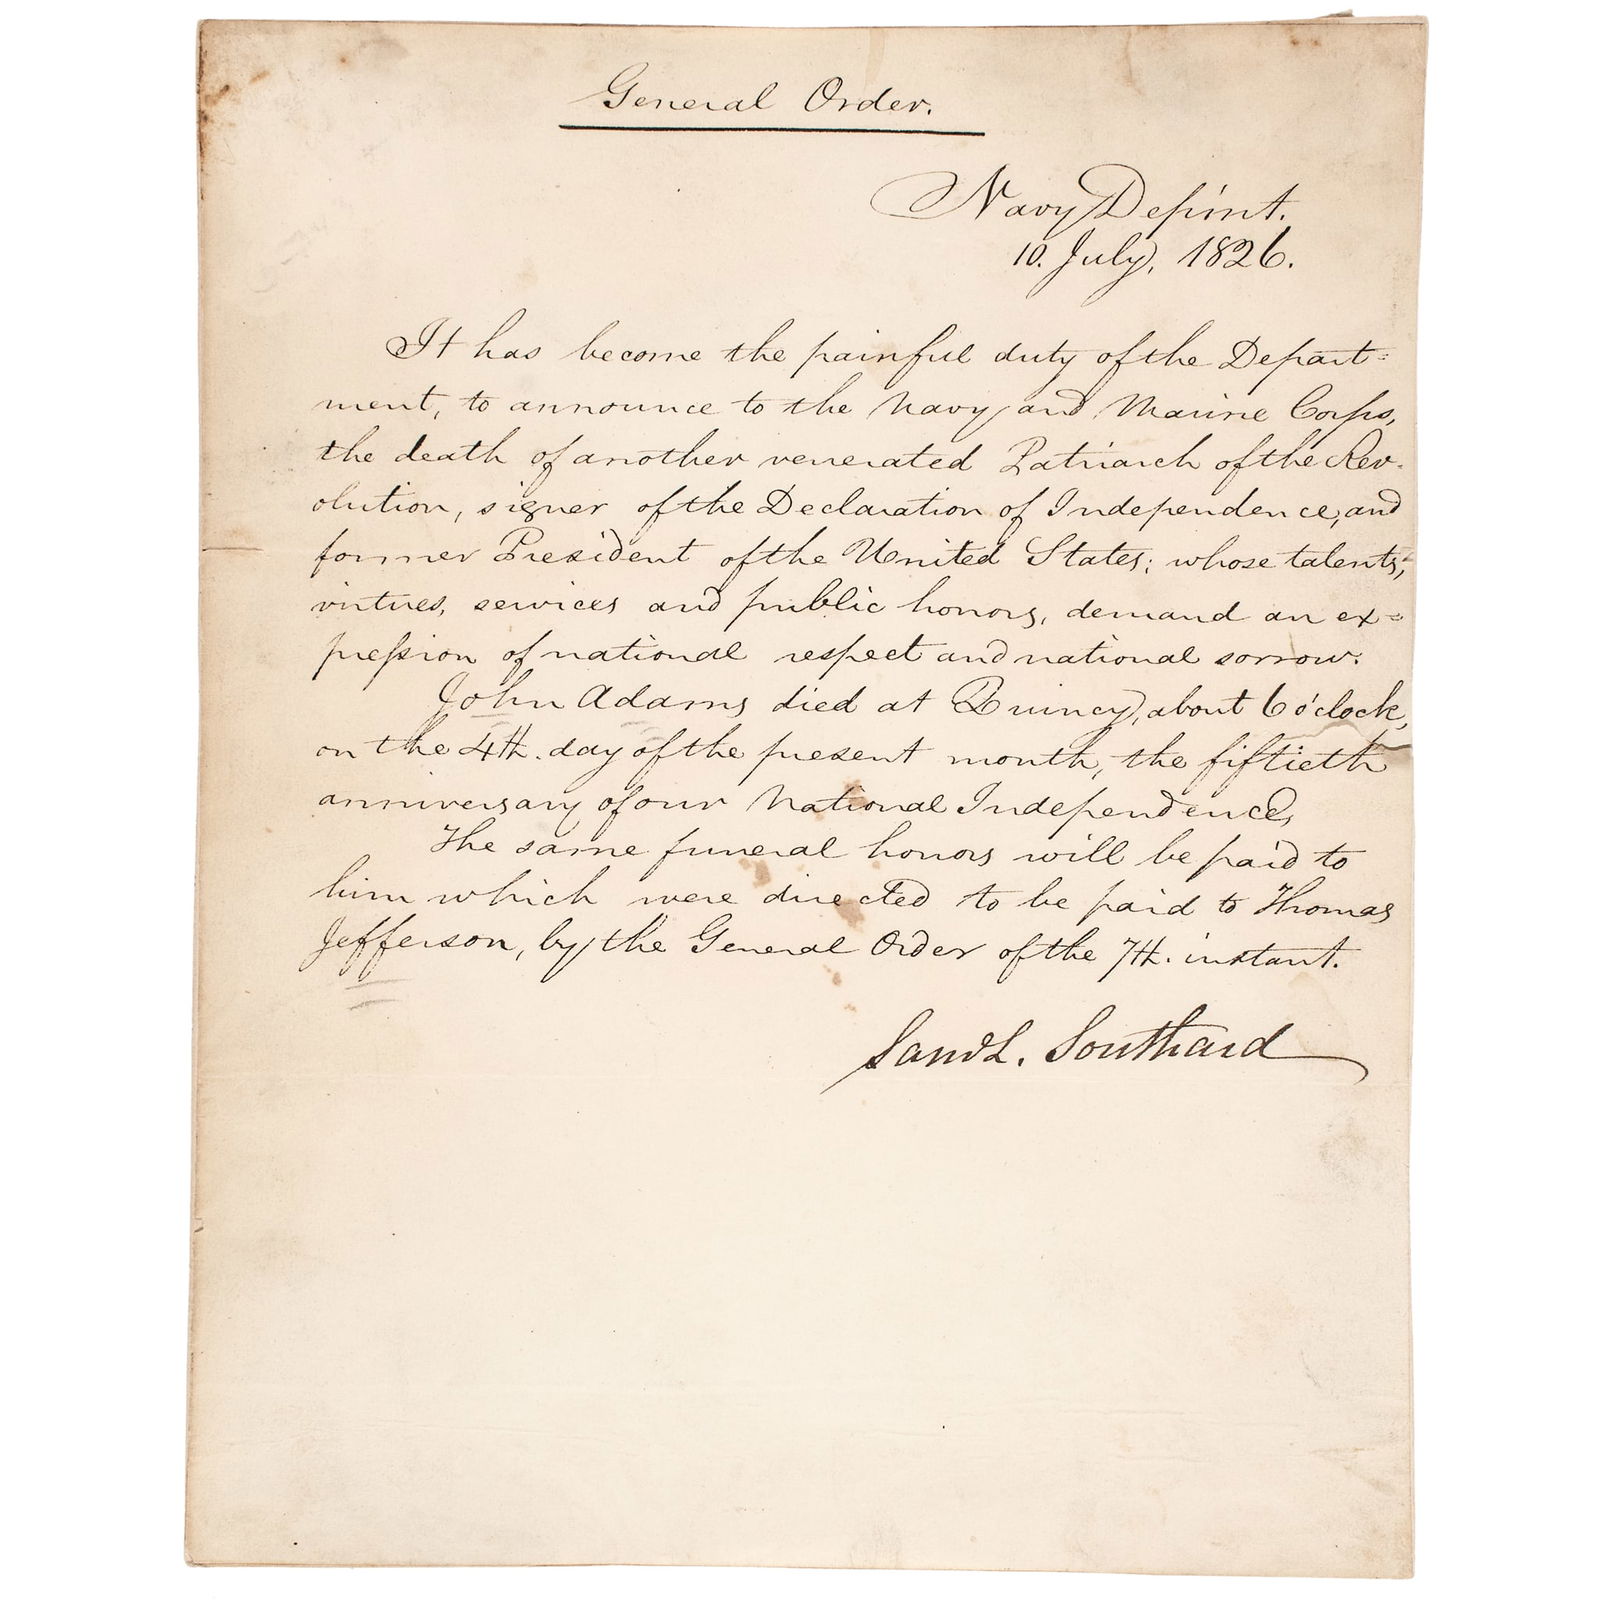 General Order.
Navy Depmt.
10. July, 1826.
It has become the painful duty of the Depart=
ment, to announce to the Navy and Marine Corps,
the death of another venerated Patriarch of the Rev-
olution, signer of the Declaration of Independence, and
former President of the United States; whose talents,
virtues, services and public honors, demand an ex=
pression of national respect and national sorrow.
John Adams died at Quincy, about 6 o'clock,
on the 4th. day of the present month, the fiftieth
anniversary of our National Independence,
The same funeral honors will be paid to
him which were directed to be paid to Thomas
Jefferson, by the General Order of the 7th. instant.
Saml L. Southard